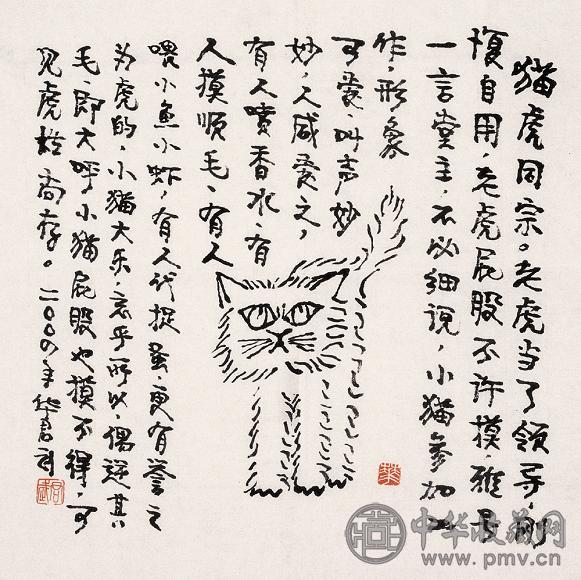 猫虎同宗。老虎当了领导，刚
愎自用，老虎屁股不许摸，雅号
一言堂主，不必细说，小猫参加工
作，形象
可爱，叫声妙
妙，人咸爱之，
有人喷香水，有
人摸顺毛，有人
喂小鱼小虾，有人代捉蚤，更有誉之
为虎的，小猫大乐，忘乎所以，偶逆其
毛，即大呼，小猫屁股也摸不得，可
见虎性尚存。二〇〇四年 华君武
华
君武
中华收藏网
www.pmv.cn